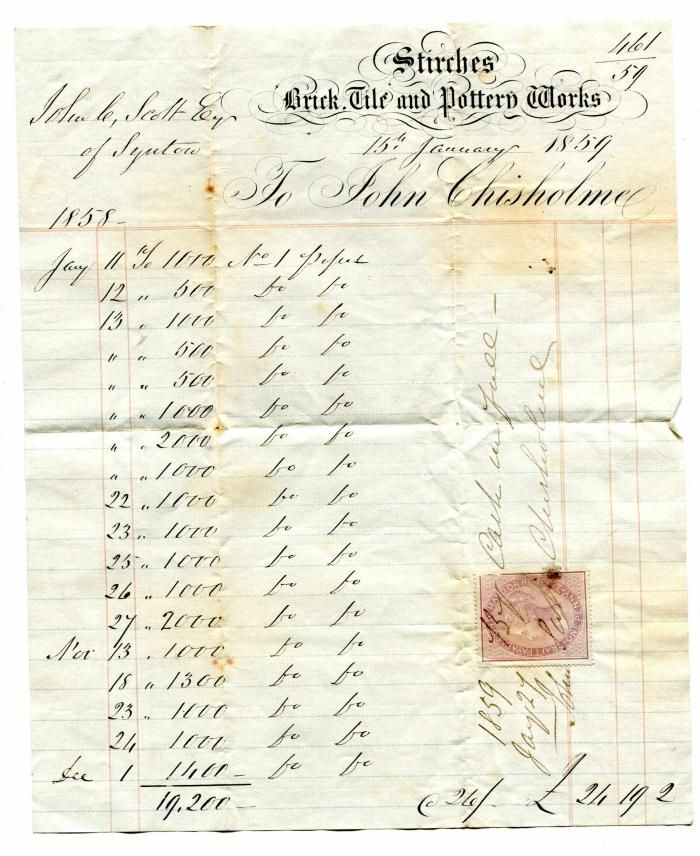 461
59
Stirches
Brick, Tile and Pottery Works
John C. Scott Esqr
of Synton
15th January 1859
To John Chisholme
1858 -
Jany 11 To 1000 No 1 pipes
12 " 500 Do Do
13 " 1000 Do Do
" " 500 Do Do
" " 500 Do Do
" " 1000 Do Do
" " 2000 Do Do
" " 1000 Do Do
22 " 1000 Do Do
23 " 1000 Do Do
25 " 1000 Do Do
26 " 1000 Do Do
27 " 2000 Do Do
Nov 13 " 1000 Do Do
18 " 1300 Do Do
23 " 1000 Do Do
24 1000 Do Do
Dec 1 1400 - Do Do
19,200 - @ 26/ £ 24 19 2
1859
Jany 27
By Cash in full -
John Chisholme